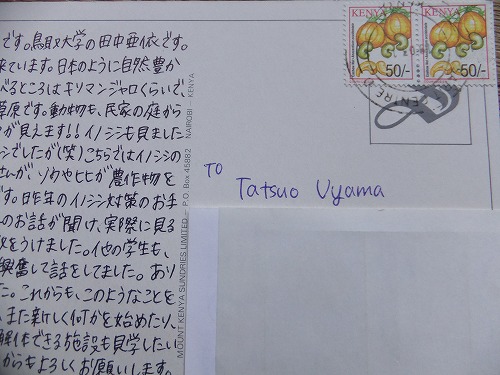 です。鳥取大学の田中亜依です。
来ています。日本のように自然豊か
べるところはキリマンジャロくらいで、
草原です。動物も、民家の庭から
が見えます!!イノシシも見ました
シでしたが(笑)こちらではイノシシの
さんが、ゾウやヒヒが農作物を
です。昨年のイノシシ対策のお手
のお話が聞け、実際に見る
をうけました。他の学生も、
興奮して話をしてました。あり
た。これからも、このようなことを
、また新しく何かを始めたり、
解体できる施設も見学したい
からもよろしくお願いします。
MOUNT KENYA SUNDRIES LIMITED – P.O. Box 45882 NAIROBI – KENYA
KENYA
50/-
KENYA
50/-
TO
Tatsuo Uyama